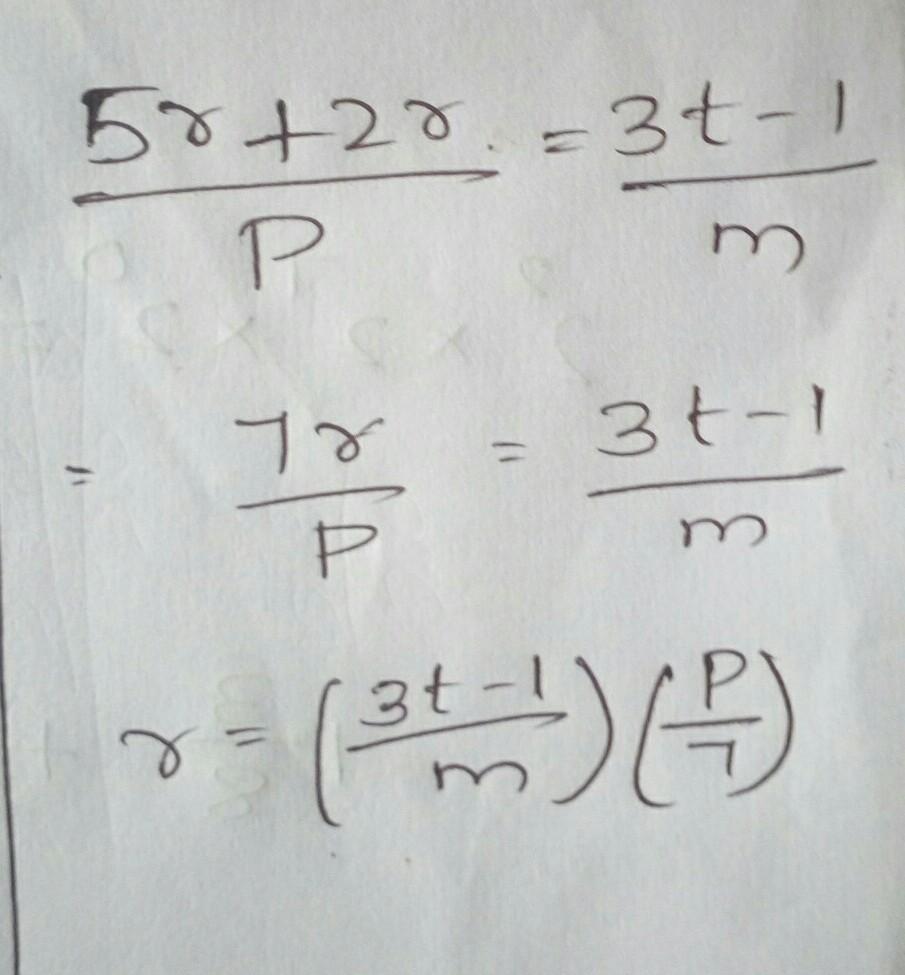 (5r+2r)/P = (3t-1)/m
= 7r/P = (3t-1)/m
r = ((3t-1)/m)(P/7)